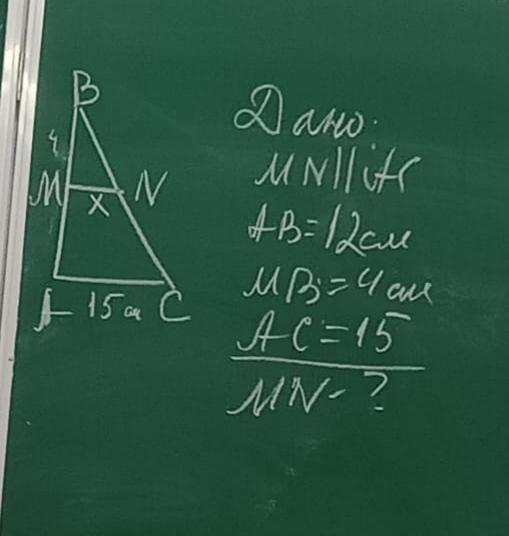 B
4
M x N
A 15 см C
Дано:
MN||AC
AB=12см
MB=4см
AC=15
MN-?